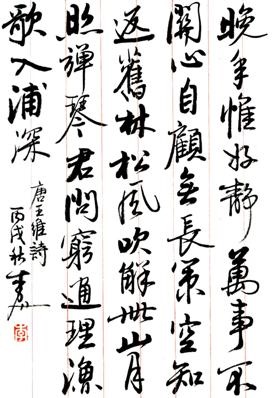 晚年惟好靜萬事不
關心自顧無長策空知
返舊林松風吹解帶山月
照彈琴君問窮通理漁
歌入浦深
唐王維詩
丙戌秋